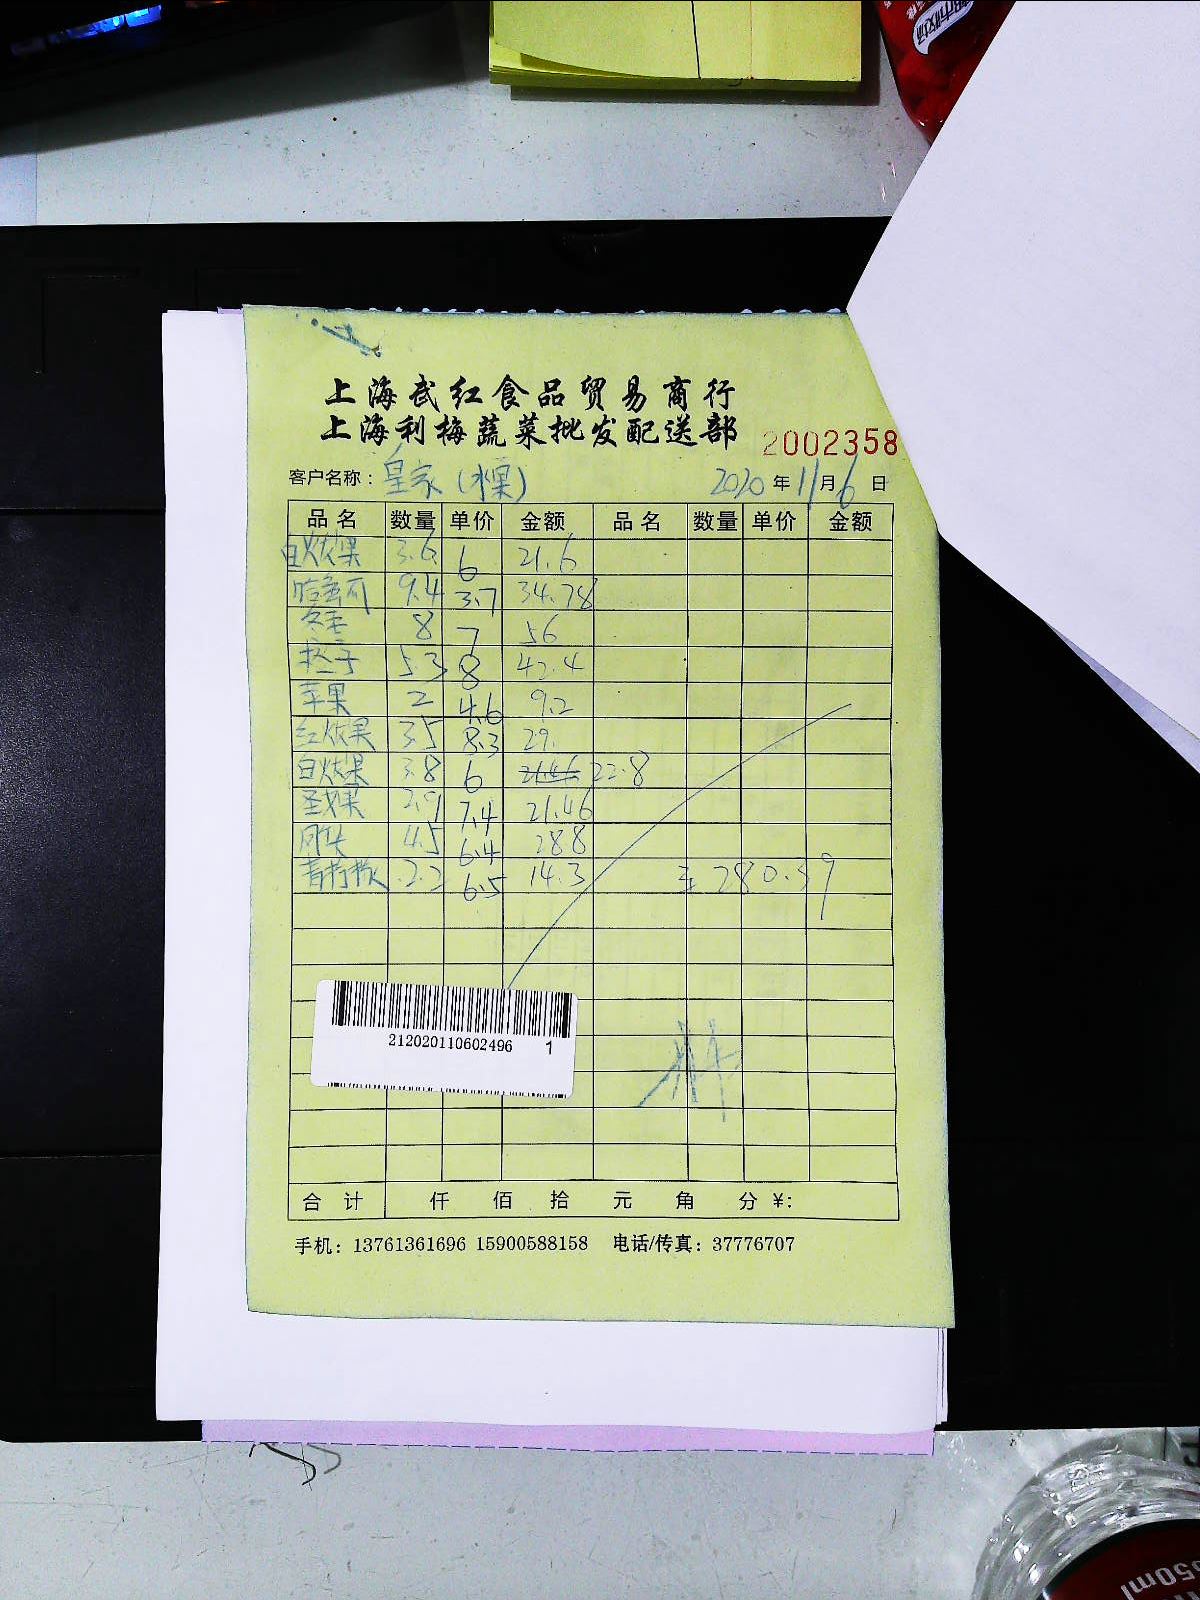 上海武红食品贸易商行
上海利梅蔬菜批发配送部
2002358
客户名称：皇家（水果） 2020年11月6日
品名 数量 单价 金额 品名 数量 单价 金额
白火龙果 3.6 6 21.6
哈密瓜 9.4 3.7 34.78
冬枣 8 7 56
橙子 5.3 8 42.4
苹果 2 4.6 9.2
红火龙果 3.5 8.3 29.
白火龙果 3.8 6 21.46 22.8
圣女果 2.9 7.4 21.46
4.5 6.4 28.8
2.2 6.5 14.3 280.39
212020110602496 1
合计 仟 佰 拾 元 角 分 ¥:
手机：13761361696 15900588158 电话/传真：37776707
550ml